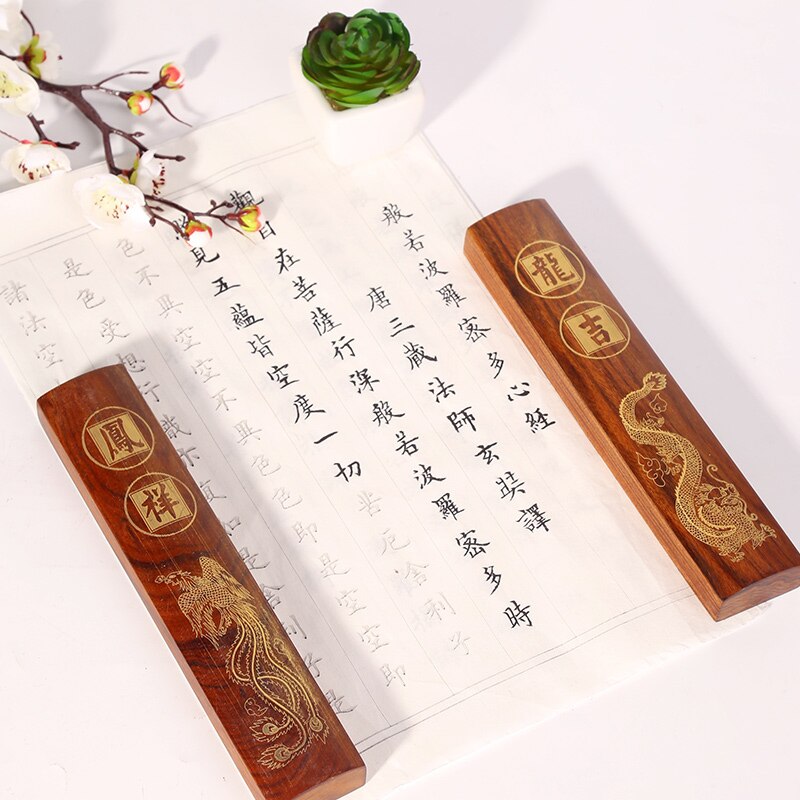 龍吉
般若波羅密多心經
唐三藏法師玄奘譯
觀自在菩薩行深般若波羅密多時
照見五蘊皆空度一切苦厄舍利子
色不異空空不異色色即是空空即
是色受想行識亦復如是舍利子是
諸法空
鳳祥